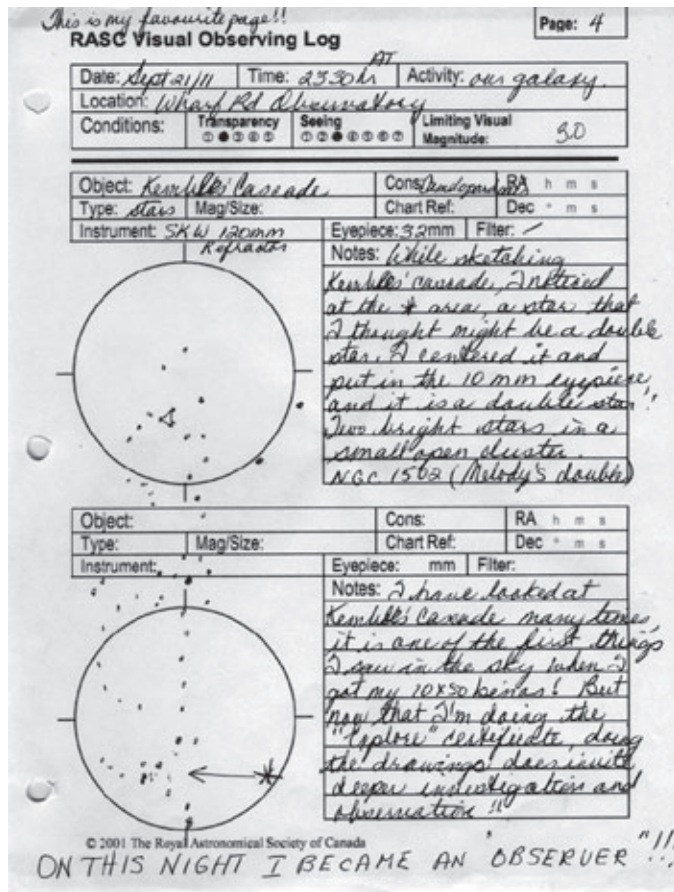 This is my favourite page!!
Page: 4
RASC Visual Observing Log
Date: Sept 21/11 Time: 2330hr AT Activity: our galaxy.
Location: Wharf Rd Observatory
Conditions: Transparency Seeing Limiting Visual Magnitude: 3.0
① ● ③ ④ ⑤ ① ② ● ④ ⑤ ⑥ ⑦
Object: Kembles' Cascade Cons: RA h m s
Type: stars Mag/Size: Chart Ref: Dec ° m s
Instrument: SKW 120mm Refractor Eyepiece: 32mm Filter: /
Notes: While sketching
Kembles' cascade, I noticed
at the * area, a star that
I thought might be a double
star. I centered it and
put in the 10 mm eyepiece
and it is a double star!!
Two bright stars in a
small open cluster.
NGC 1502 (Melody's double)
Object: Cons: RA h m s
Type: Mag/Size: Chart Ref: Dec ° m s
Instrument: Eyepiece: mm Filter:
Notes: I have looked at
Kembles' Cascade many times,
it is one of the first things
I saw in the sky when I
got my 10x50 binos! But
now that I'm doing the
"Explore" certificate, doing
the drawings does invite
deeper investigation and
observation!!
*
© 2001 The Royal Astronomical Society of Canada
ON THIS NIGHT I BECAME AN "OBSERVER"!!!